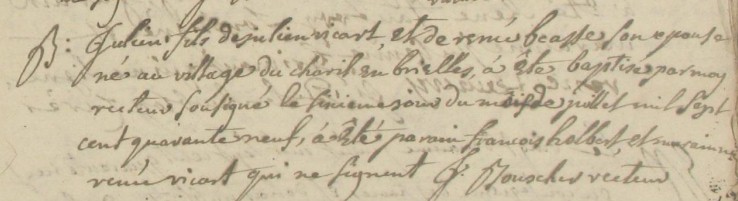 B: Julien fils de julien vicart et de renée beasse son epouse
né au village du chéril en brielles, à été baptisé par moy
recteur soutigné le sixieme jour du mois de juillet mil sept
cent quarante neuf, à été parain francois halbert et maraine
renée vicart qui ne signent Jh. Bouscher recteur